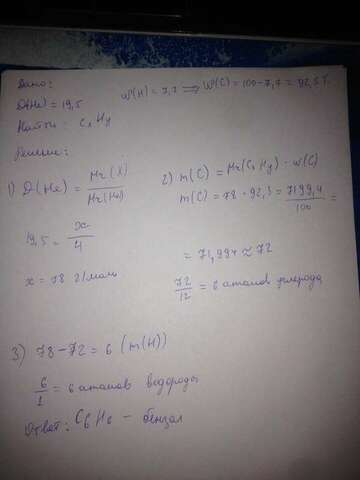 Дано:
D(He) = 19,5
Найти: CxHy
Решение:
W(H) = 7,7 ⟹ W(C) = 100-7,7 = 92,3%.
1) D(He) = Mr(X)/Mr(He)
19,5 = x/4
x = 78 г/моль
2) m(C) = Mr(CxHy) · w(C)
m(C) = 78 · 92,3 = 7199,4/100 =
= 71,994 ≈ 72
72/12 = 6 атомов углерода
3) 78-72 = 6 (m(H))
6/1 = 6 атомов водорода
Ответ: C6H6 - бензол